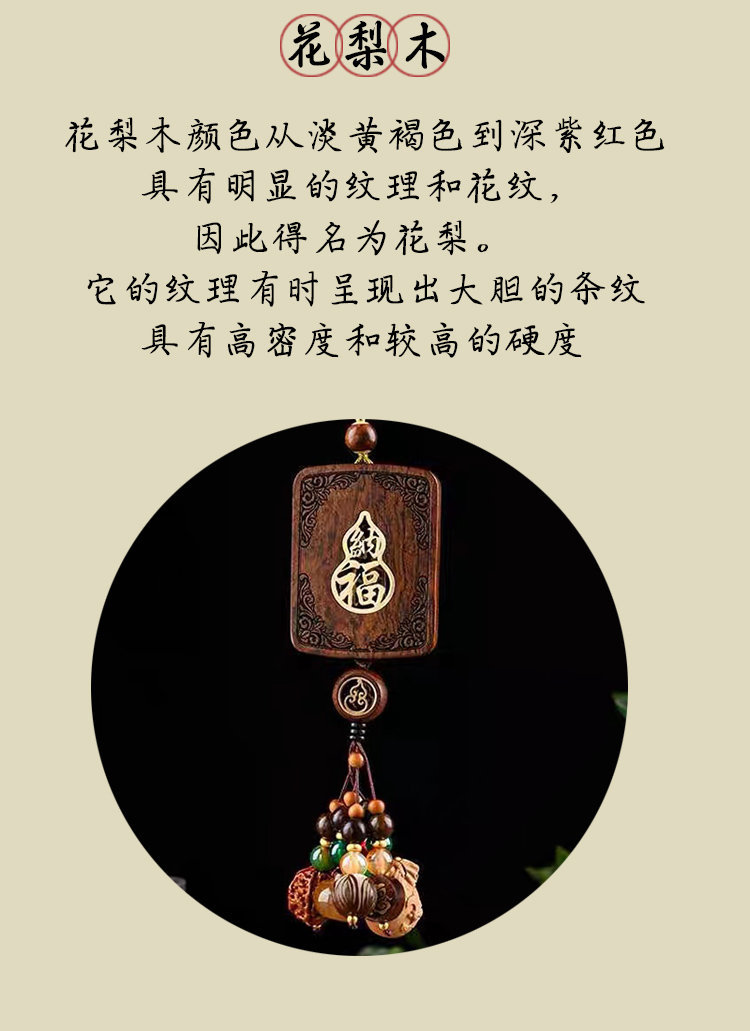 花梨木
花梨木颜色从淡黄褐色到深紫红色
具有明显的纹理和花纹，
因此得名为花梨。
它的纹理有时呈现出大胆的条纹
具有高密度和较高的硬度
納
福